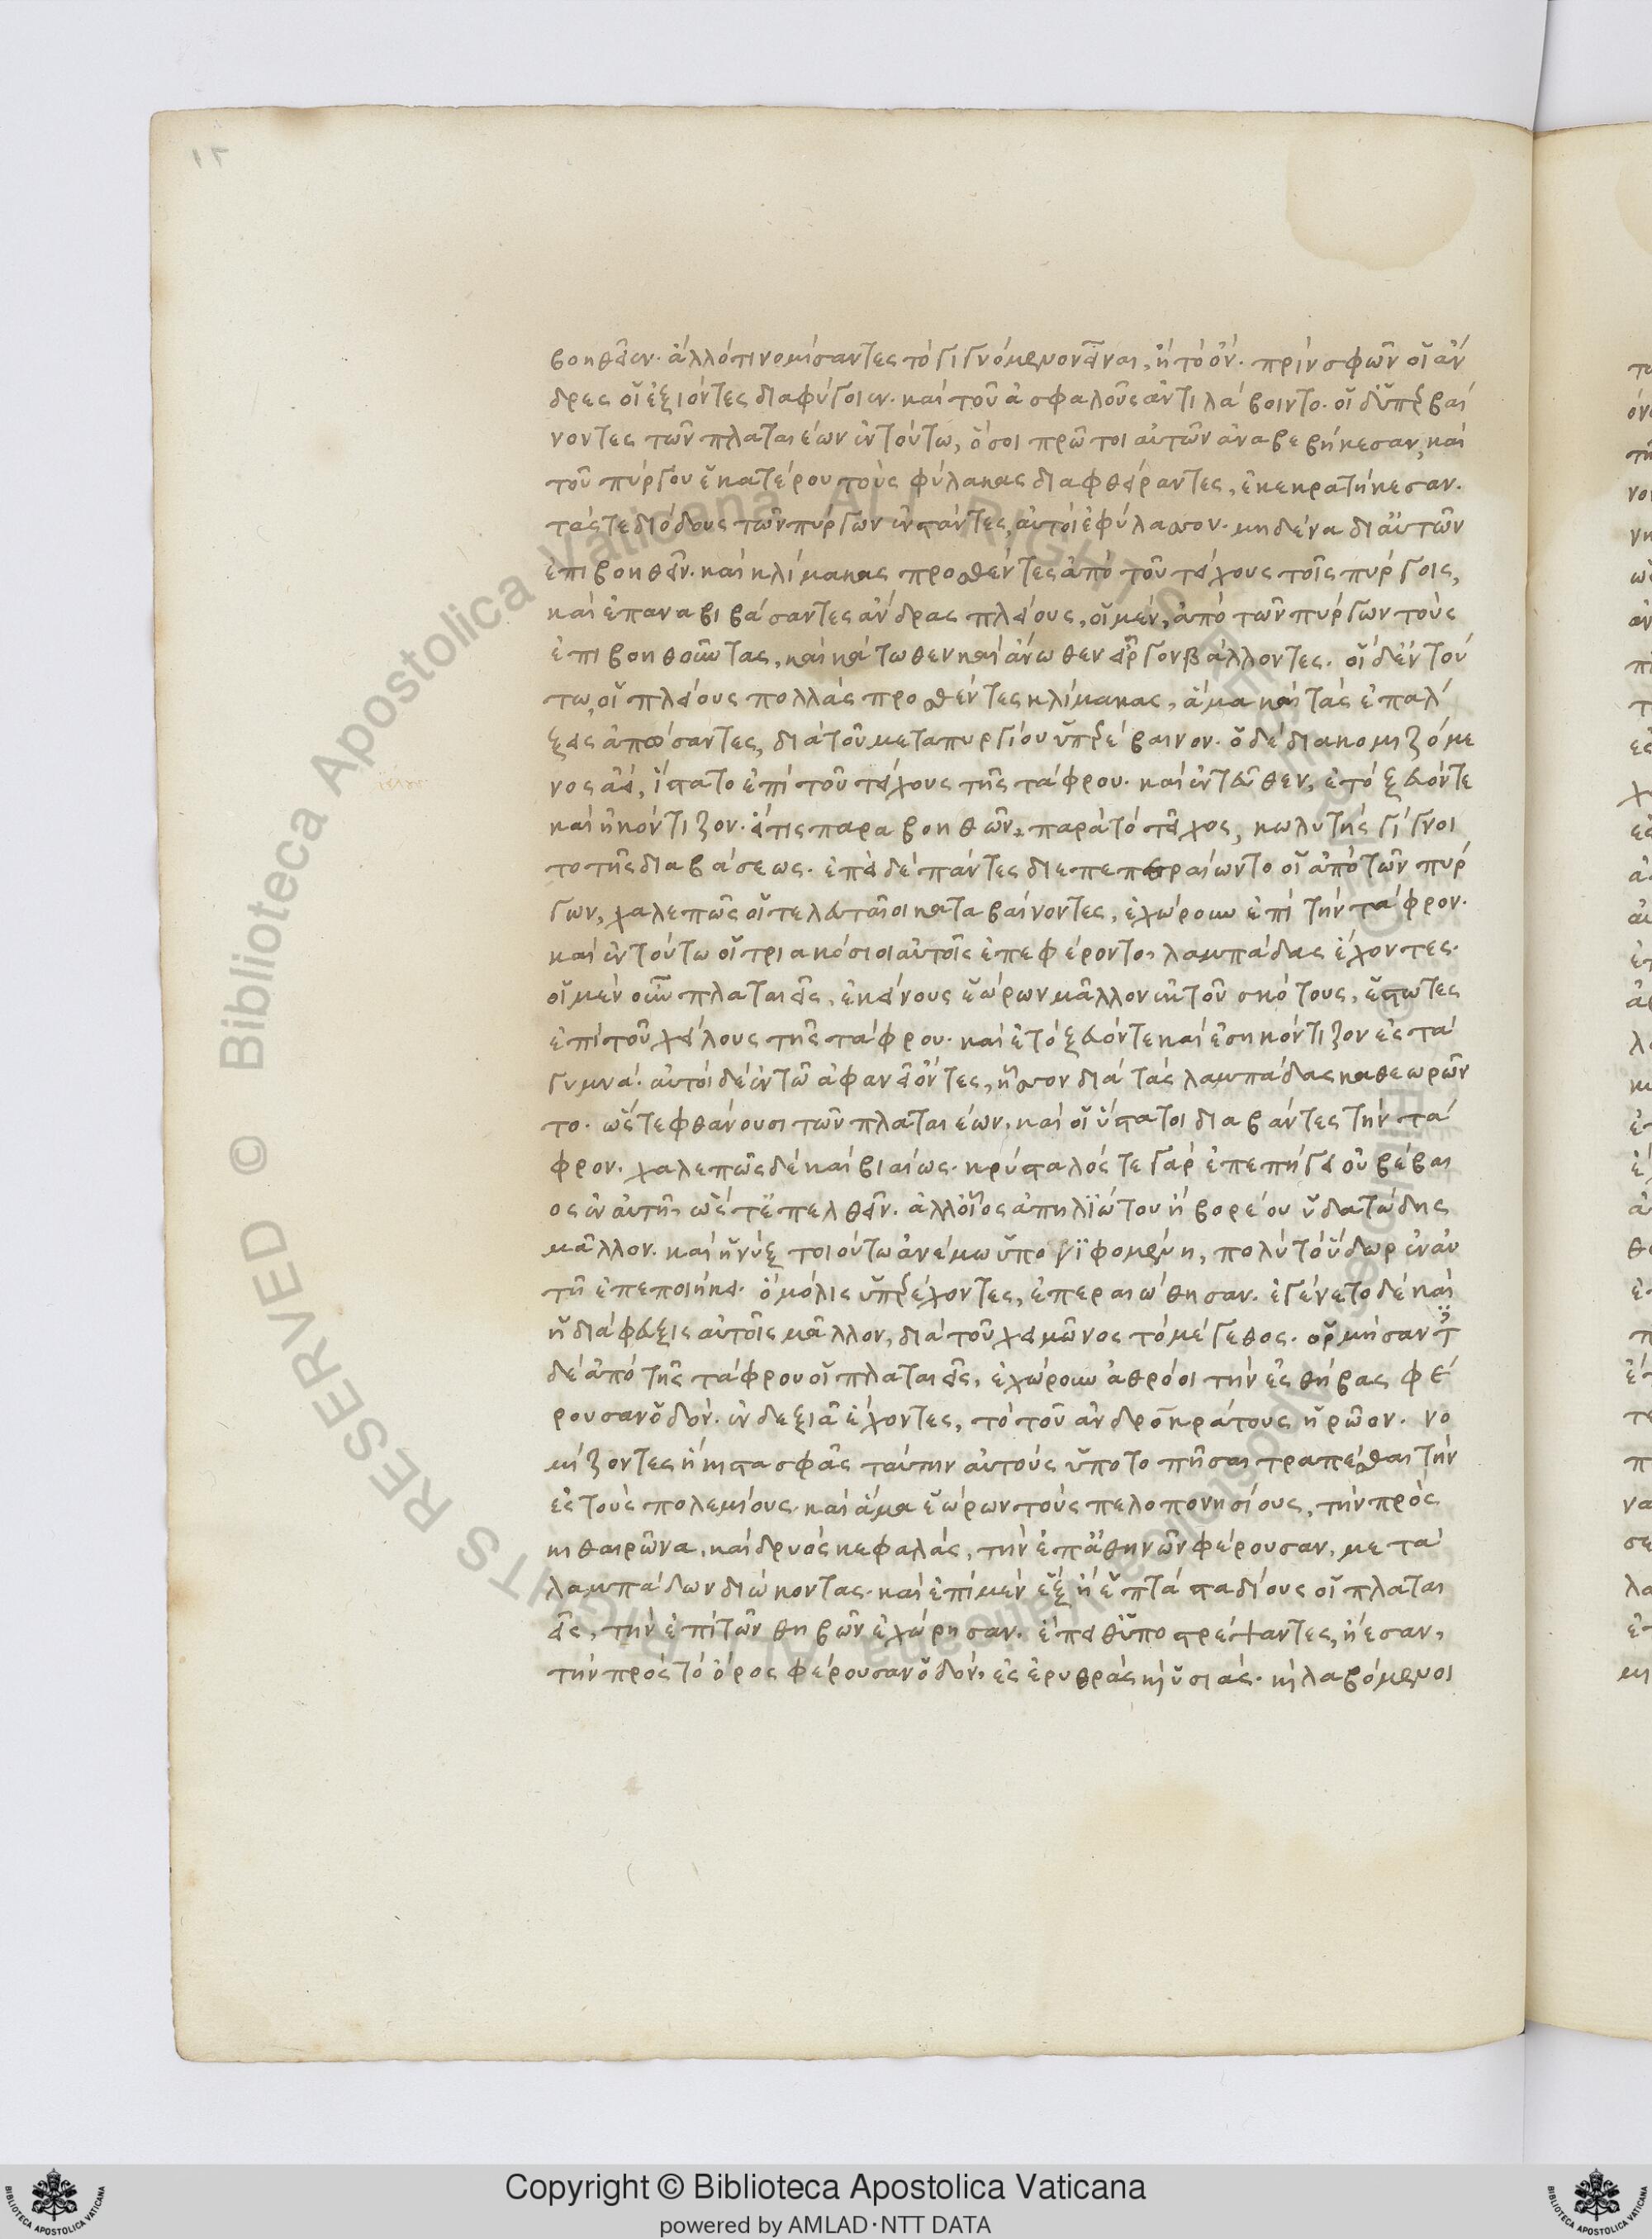 βοηθεῖεν. ἄλλό τι νομίσαντες τὸ γιγνόμενον εἶναι, ἢ τὸ ὄν. πρὶν σφῶν οἱ ἄν
δρες οἱ ἐξιόντες διαφύγοιεν. καὶ τοῦ ἀσφαλοῦς ἀντιλάβοιντο. οἱ δ' ὑπερβαί
νοντες τῶν πλαταιέων ἐν τούτω, ὅσοι πρῶτοι αὐτῶν ἀναβεβήκεσαν, καὶ
τοῦ πύργου ἑκατέρου τοὺς φύλακας διαφθείραντες, ἐκεκρατήκεσαν.
τάς τε διόδους τῶν πύργων ἐνστάντες, αὐτοὶ ἐφύλασσον. μηδένα δι' αὐτῶν
ἐπιβοηθεῖν. καὶ κλίμακας προσθέντες ἀπὸ τοῦ τείχους τοῖς πύργοις,
καὶ ἐπαναβιβάσαντες ἄνδρας πλείους, οἱ μὲν, ἀπὸ τῶν πύργων τοὺς
ἐπιβοηθοῦντας, καὶ κάτωθεν καὶ ἄνωθεν εἶργον βάλλοντες. οἱ δ' ἐν τού
τω, οἱ πλείους πολλὰς προσθέντες κλίμακας, ἅμα καὶ τὰς ἐπάλ
ξεις ἀπώσαντες, διὰ τοῦ μεταπυργίου ὑπερέβαινον. ὁ δὲ διακομιζόμε
νος ἀεί, ἵστατο ἐπὶ τοῦ τείχους τῆς τάφρου. καὶ ἐντεῦθεν, ἐτόξευόν τε
καὶ ἠκόντιζον. εἴ τις παραβοηθῶν, παρὰ τὸ τεῖχος, κωλυτὴς γίγνοι
το τῆς διαβάσεως. ἐπεὶ δὲ πάντες διεπεπεραίωντο οἱ ἀπὸ τῶν πύρ
γων, χαλεπῶς οἱ τελευταῖοι καταβαίνοντες, ἐχώρουν ἐπὶ τὴν τάφρον.
καὶ ἐν τούτω οἱ τριακόσιοι αὐτοῖς ἐπεφέροντο, λαμπάδας ἔχοντες.
οἱ μὲν οὖν πλαταιεῖς, ἐκείνους ἑώρων μᾶλλον ἐκ τοῦ σκότους, ἑστῶτες
ἐπὶ τοῦ χείλους τῆς τάφρου. καὶ ἐτόξευόν τε καὶ ἐσηκόντιζον ἐς τὰ
γυμνά. αὐτοὶ δὲ ἐν τῶ ἀφανεῖ ὄντες, ἧσσον διὰ τὰς λαμπάδας καθεωρῶν
το. ὥστε φθάνουσι τῶν πλαταιέων, καὶ οἱ ὕστατοι διαβάντες τὴν τά
φρον. χαλεπῶς δὲ καὶ βιαίως. κρύσταλός τε γὰρ ἐπεπήγει οὐ βέβαι
ος ἐν αὐτῆ, ὥστ' ἐπελθεῖν. ἀλλ' οἷος ἀπηλιώτου ἢ βορέου ὑδατώδης
μᾶλλον. καὶ ἡ νὺξ τοιούτω ἀνέμω ὑπονιφομένη, πολὺ τὸ ὕδωρ ἐν αὐ
τῆ ἐπεποιήκει. ὃ μόλις ὑπερέχοντες, ἐπεραιώθησαν. ἐγένετο δὲ καὶ
ἡ διάφευξις αὐτοῖς μᾶλλον, διὰ τοῦ χειμῶνος τὸ μέγεθος. ὁρμήσαντες
δὲ ἀπὸ τῆς τάφρου οἱ πλαταιεῖς, ἐχώρουν ἀθρόοι τὴν ἐς θήβας φέ
ρουσαν ὁδόν. ἐν δεξιᾶ ἔχοντες, τὸ τοῦ ἀνδροκράτους ἡρῶον. νο
μίζοντες ἥκιστα σφᾶς ταύτην αὐτοὺς ὑποτοπῆσαι τραπέσθαι τὴν
ἐς τοὺς πολεμίους. καὶ ἅμα ἑώρων τοὺς πελοπονησίους, τὴν πρὸς
κιθαιρῶνα, καὶ δρυὸς κεφαλάς, τὴν ἐπ' ἀθηνῶν φέρουσαν, μετὰ
λαμπάδων διώκοντας. καὶ ἐπὶ μὲν ἓξ ἢ ἑπτὰ σταδίους οἱ πλαται
εῖς, τὴν ἐπὶ τῶν θηβῶν ἐχώρησαν. ἔπειθ' ὑποστρέψαντες, ἤεσαν,
τὴν πρὸς τὸ ὄρος φέρουσαν ὁδόν, ἐς ἐρυθρὰς καὶ ὑσιάς. καὶ λαβόμενοι
Copyright © Biblioteca Apostolica Vaticana
powered by AMLAD·NTT DATA